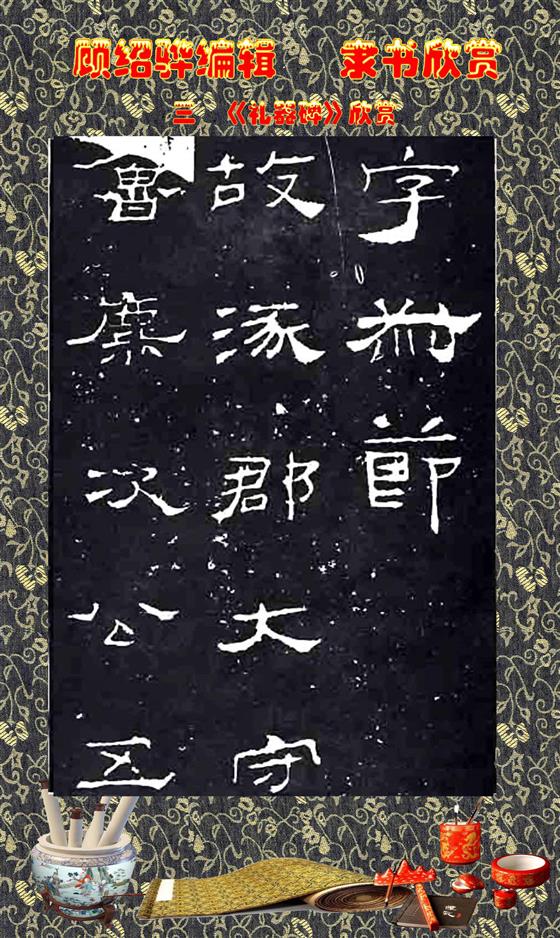 顾绍骅编辑 隶书欣赏
三 《礼器碑》欣赏
字叔節
故涿郡大守
魯麃次公五